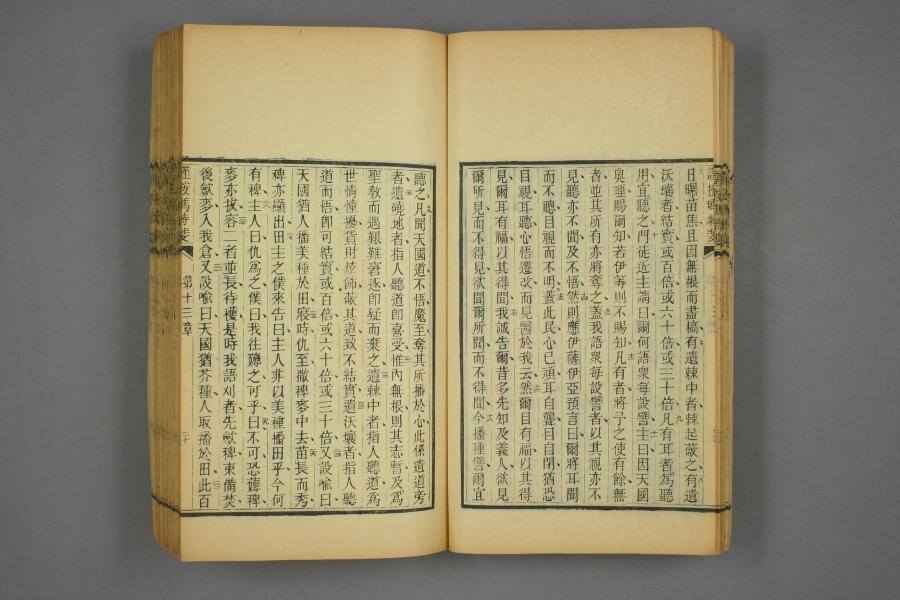 日曝苗焦且因無根而盡槁有遺棘中者棘起蔽之有遺
沃壤者結實或百倍或六十倍或三十倍凡有耳者焉聽
用宜聽之門徒近主請曰爾何語衆每設譬主曰因天國
奧理賜爾知若伊等則不賜知凡有者將予之使有餘無
者並其所有亦將奪之蓋我語衆每設譬者以其視亦不
見聽亦不聞及不悟然則應伊薩伊亞預言曰爾將耳聞
而不聰目視而不明蓋此民心已頑耳自聾目自閉猶恐
目視耳聽心悟遷改而見醫於我云然爾目有福以其得
見爾耳有福以其得聞我誠告爾昔多先知及義人欲見
爾所見而不得見欲聞爾所聞而不得聞今播種譬爾宜
聽之凡聞天國道不悟魔至奪其所播於心此係遺道旁
者遺磽地者指人聽道即喜受惟內無根則其志暫及為
聖教而遇艱難窘逐即疑而棄之遺棘中者指人聽道為
世情憧擾貨財炫飾蔽其道致不結實遺沃壤者指人聽
道而悟即可結實或百倍或六十倍或三十倍又設喻曰
天國猶人播美種於田寢時仇至撒稗麥中去苗長而秀
稗亦顯出田主之僕來告曰主人非以美種播田乎今何
有稗主人曰仇為之僕曰我往薅之可乎曰不可恐薅稗
麥亦拔容二者並長待穫是時我語刈者先斂稗束備焚
後斂麥入我倉又設喻曰天國猶芥種人取播於田此百
第十三章